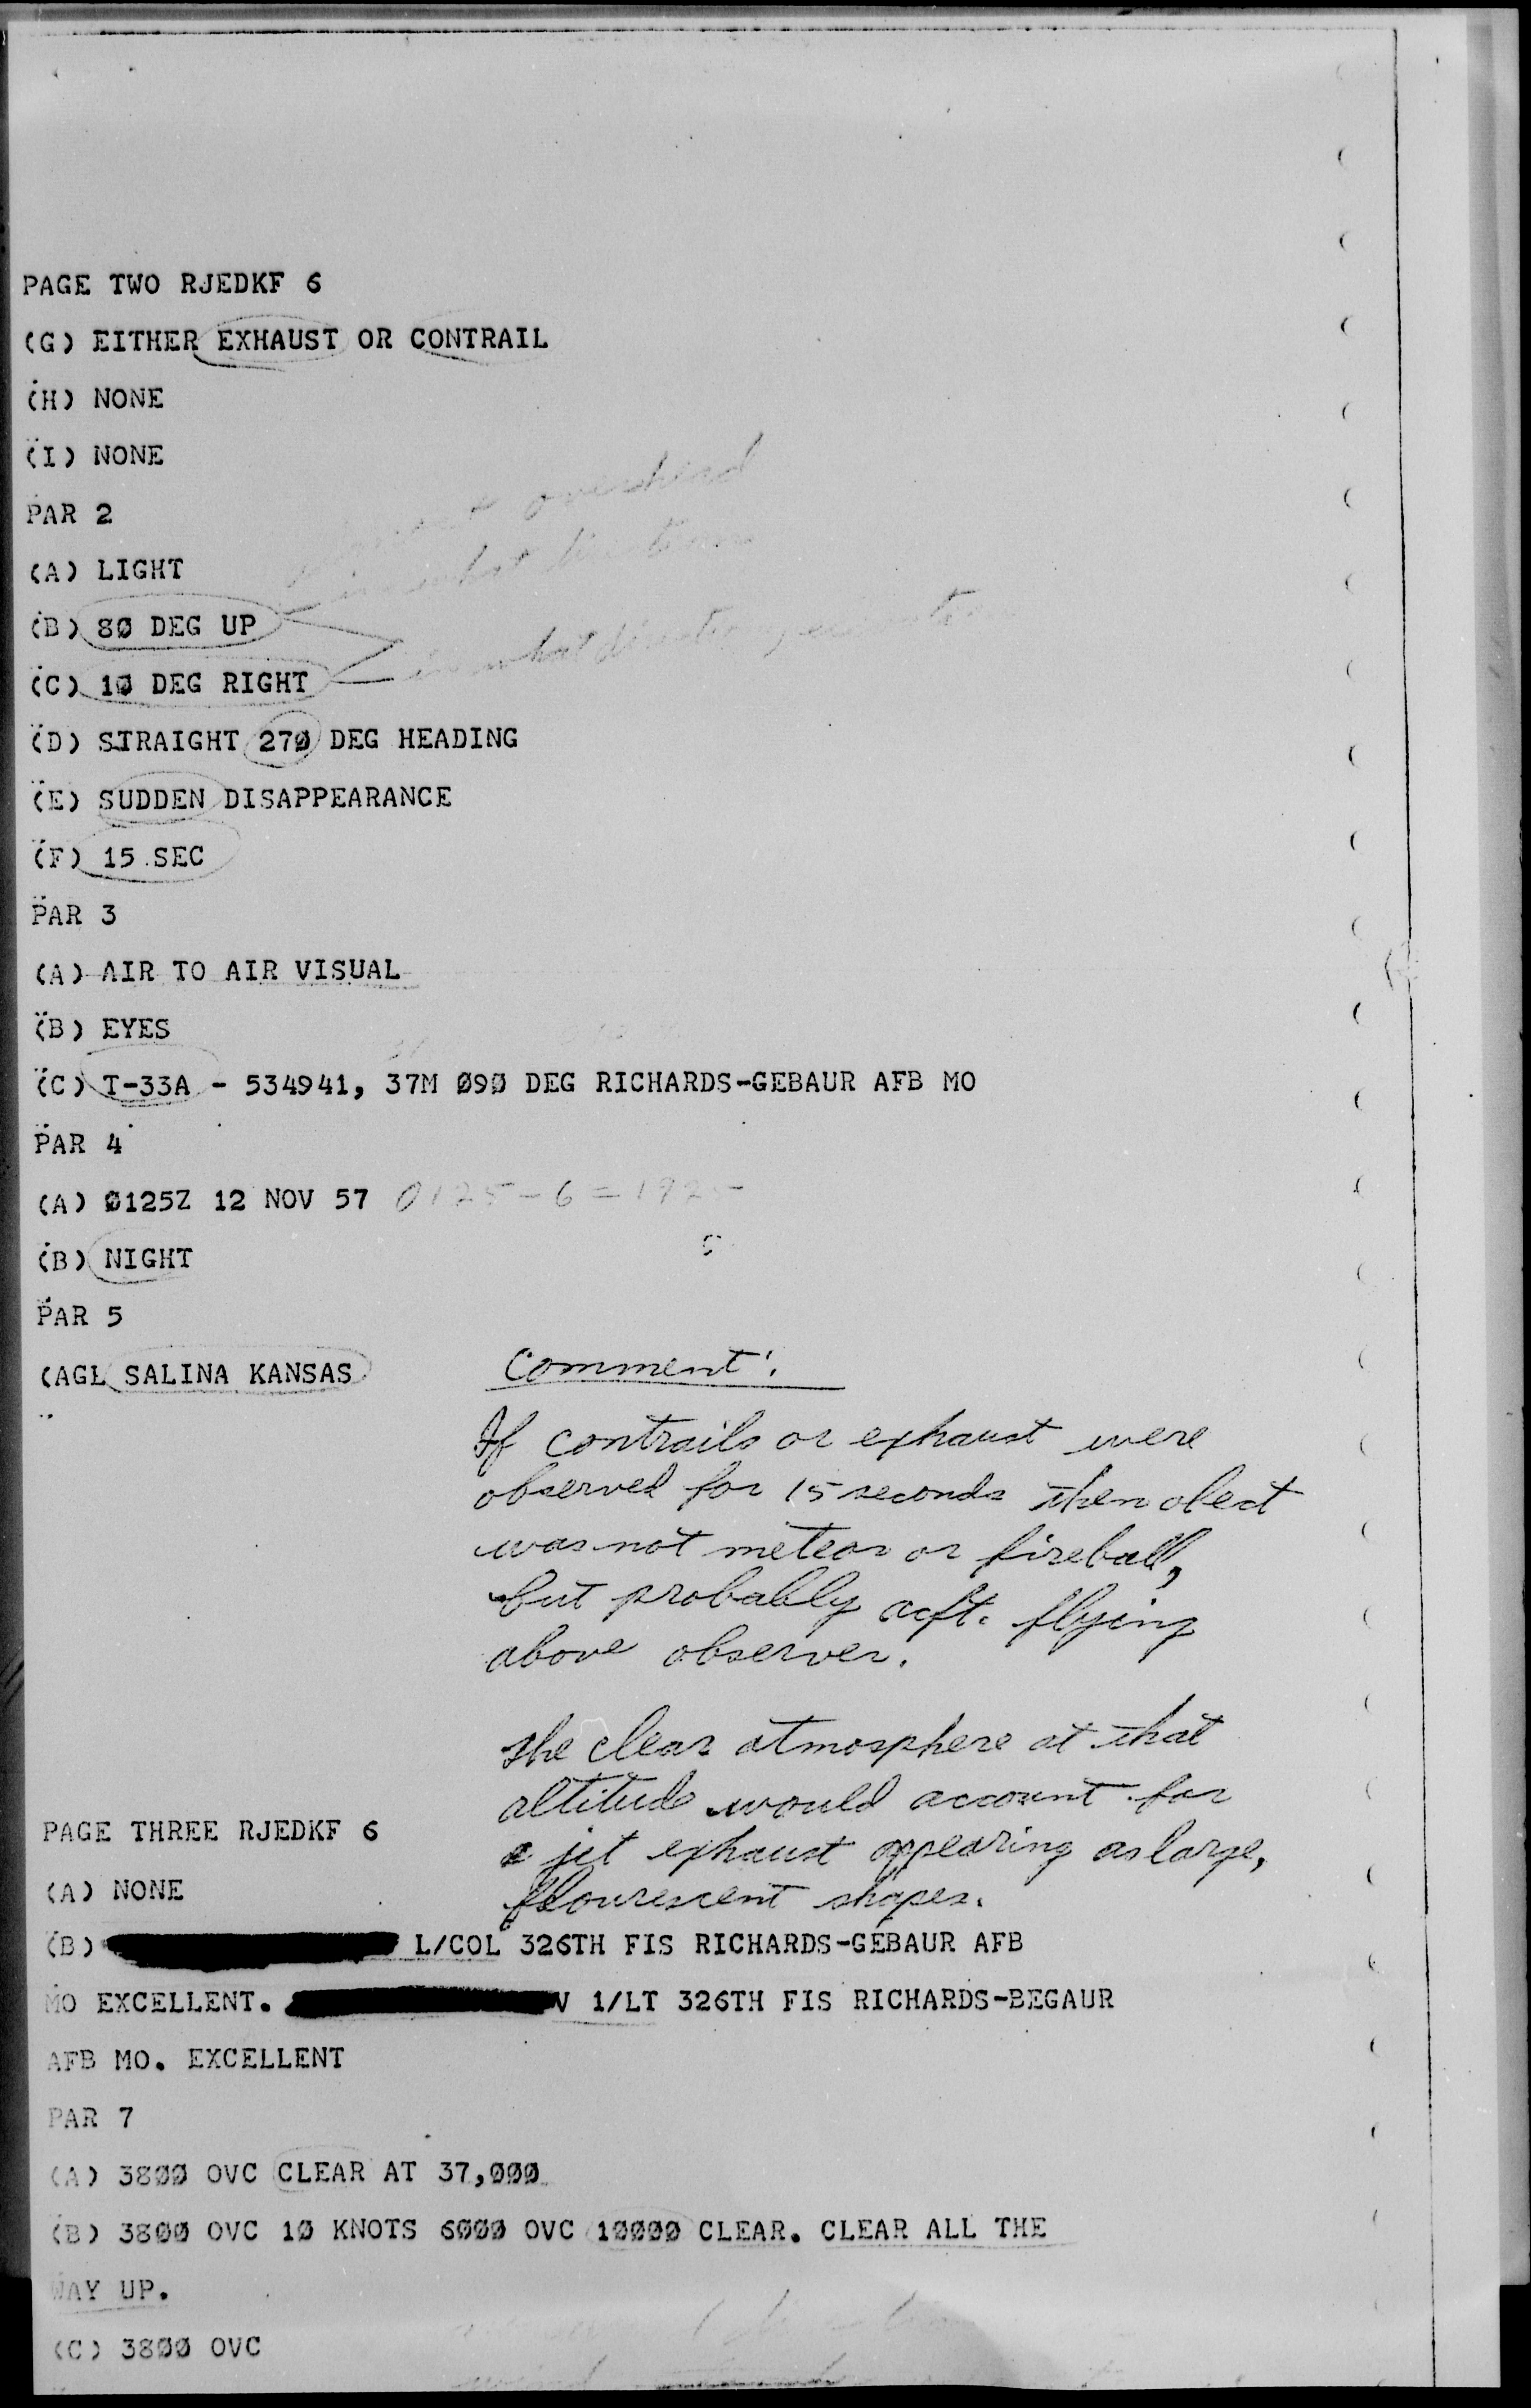 PAGE TWO RJEDKF 6
(G) EITHER EXHAUST OR CONTRAIL
(H) NONE
(I) NONE
overhead
PAR 2
in what direction
(A) LIGHT
(B) 80 DEG UP
in what direction
(C) 10 DEG RIGHT
(D) STRAIGHT 270 DEG HEADING
(E) SUDDEN DISAPPEARANCE
(F) 15 SEC
PAR 3
(A) AIR TO AIR VISUAL
(B) EYES
(C) T-33A - 534941, 37M 090 DEG RICHARDS-GEBAUR AFB MO
PAR 4
(A) 0125Z 12 NOV 57 0125-6=1925
(B) NIGHT
PAR 5
(AGL SALINA KANSAS
Comment:
If contrails or exhaust were
observed for 15 seconds then obect
was not meteor or fireball,
but probably acft. flying
above observer.
The clear atmosphere at that
altitude would account for
a jet exhaust appearing as large,
flourescent shapes.
PAGE THREE RJEDKF 6
(A) NONE
(B) L/COL 326TH FIS RICHARDS-GEBAUR AFB
MO EXCELLENT. V 1/LT 326TH FIS RICHARDS-BEGAUR
AFB MO. EXCELLENT
PAR 7
(A) 3800 OVC CLEAR AT 37,000
(B) 3800 OVC 10 KNOTS 6000 OVC 10000 CLEAR. CLEAR ALL THE
WAY UP.
(C) 3800 OVC